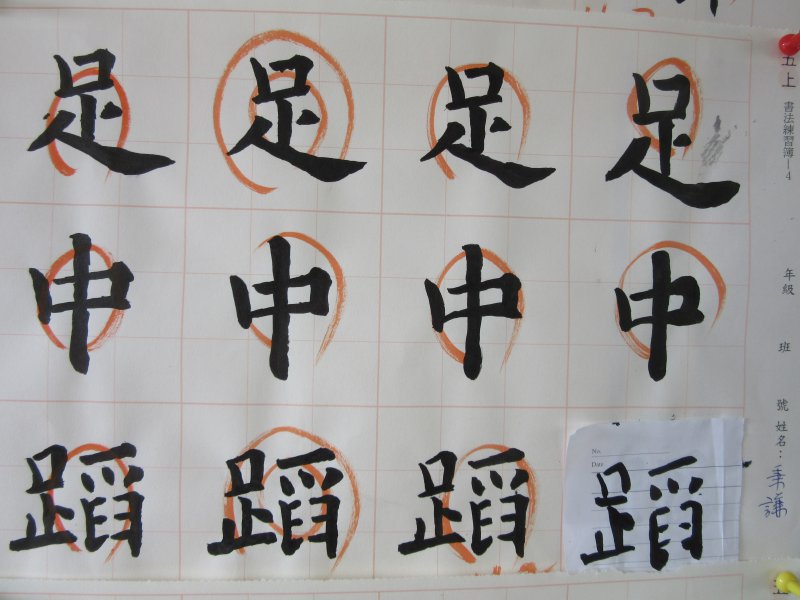 五上 書法練習簿－4
年級 班 號 姓名：秉謙
足中蹈
No.
Date
足中蹈
足中蹈
足中蹈
五